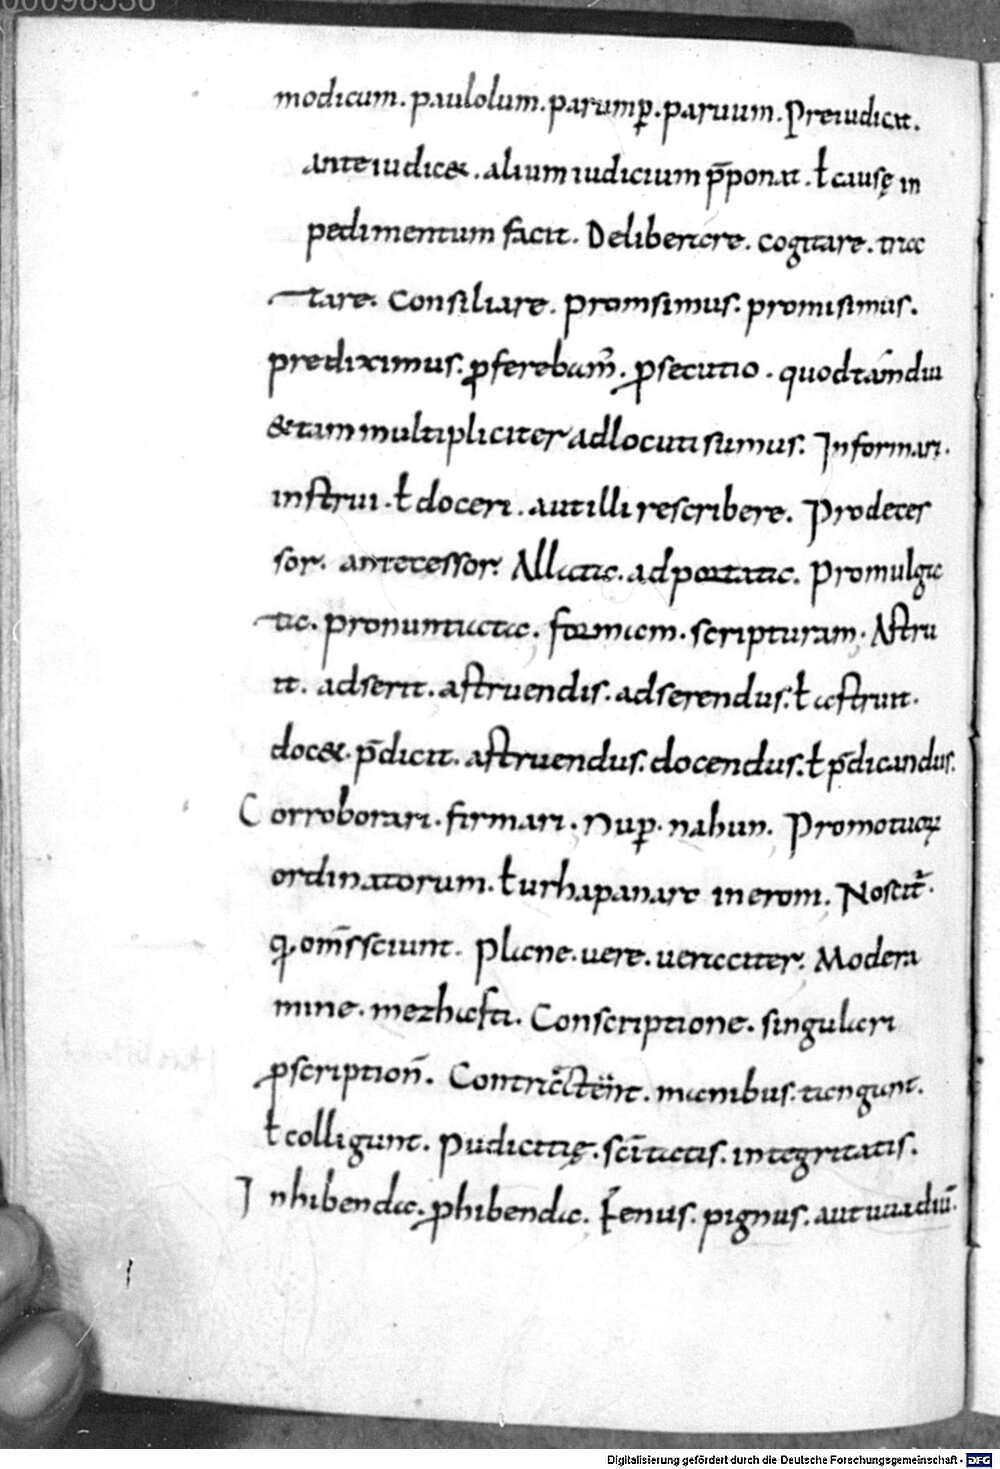 00096536
modicum. paulolum. parump̱. paruum. Preiudicit.
anteiudic&. alium iudicium p̄ponat. ƚ causę in
pedimentum facit. Deliberare. cogitare. trac
tare. Consiliare. promsimus. promisimus.
prediximus. ꝓferebam̄. ꝓsecutio. quod tamdiu
&tam multipliciter adlocuti sumus. Informari.
instrui. ƚ doceri. aut illi rescribere. Prodeces
sor. antecessor. Allata. adportata. promulga
ta. pronuntiata. formam. scripturam. Astru
it. adserit. astruendis. adserendus. ƚ astruit.
doc&. p̄dicit. astruendus. docendus. ƚ p̄dicandus.
Corroborari. firmari. Nuꝑ. nahun. Promotuoꝝ
ordinatorum. ƚ urhapanare in erom. Noscit᷑.
q. om̄s sciunt. Plane. uere. ueraciter. Modera
mine. mezhafti. Conscriptione. singulari
ꝓscription̄. Contrectent. manibus. tangunt.
ƚ colligunt. pudicitię. sc̄itatis. integritatis.
Inhibenda. ꝓhibenda. Fenus. pignus. aut uuadiū.
Digitalisierung gefördert durch die Deutsche Forschungsgemeinschaft - DFG